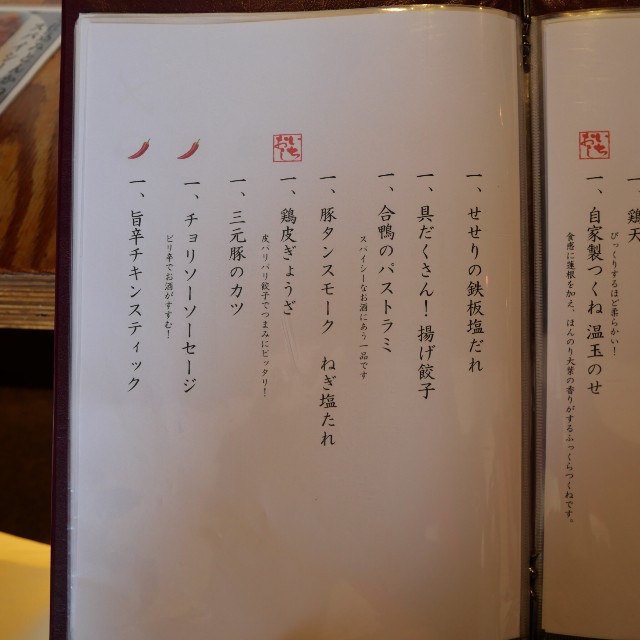 鶏天
びっくりするほど柔らかい!
いちおし
一、自家製つくね 温玉のせ
食感に蓮根を加え、ほんのり大葉の香りがするふっくらつくねです。
一、せせりの鉄板塩だれ
一、具だくさん! 揚げ餃子
一、合鴨のパストラミ
スパイシーなお酒にあう一品です
一、豚タンスモーク ねぎ塩たれ
いちおし
一、鶏皮ぎょうざ
皮パリパリ餃子でつまみにピッタリ!
一、三元豚のカツ
一、チョリソーソーセージ
ピリ辛でお酒がすすむ!
一、旨辛チキンスティック